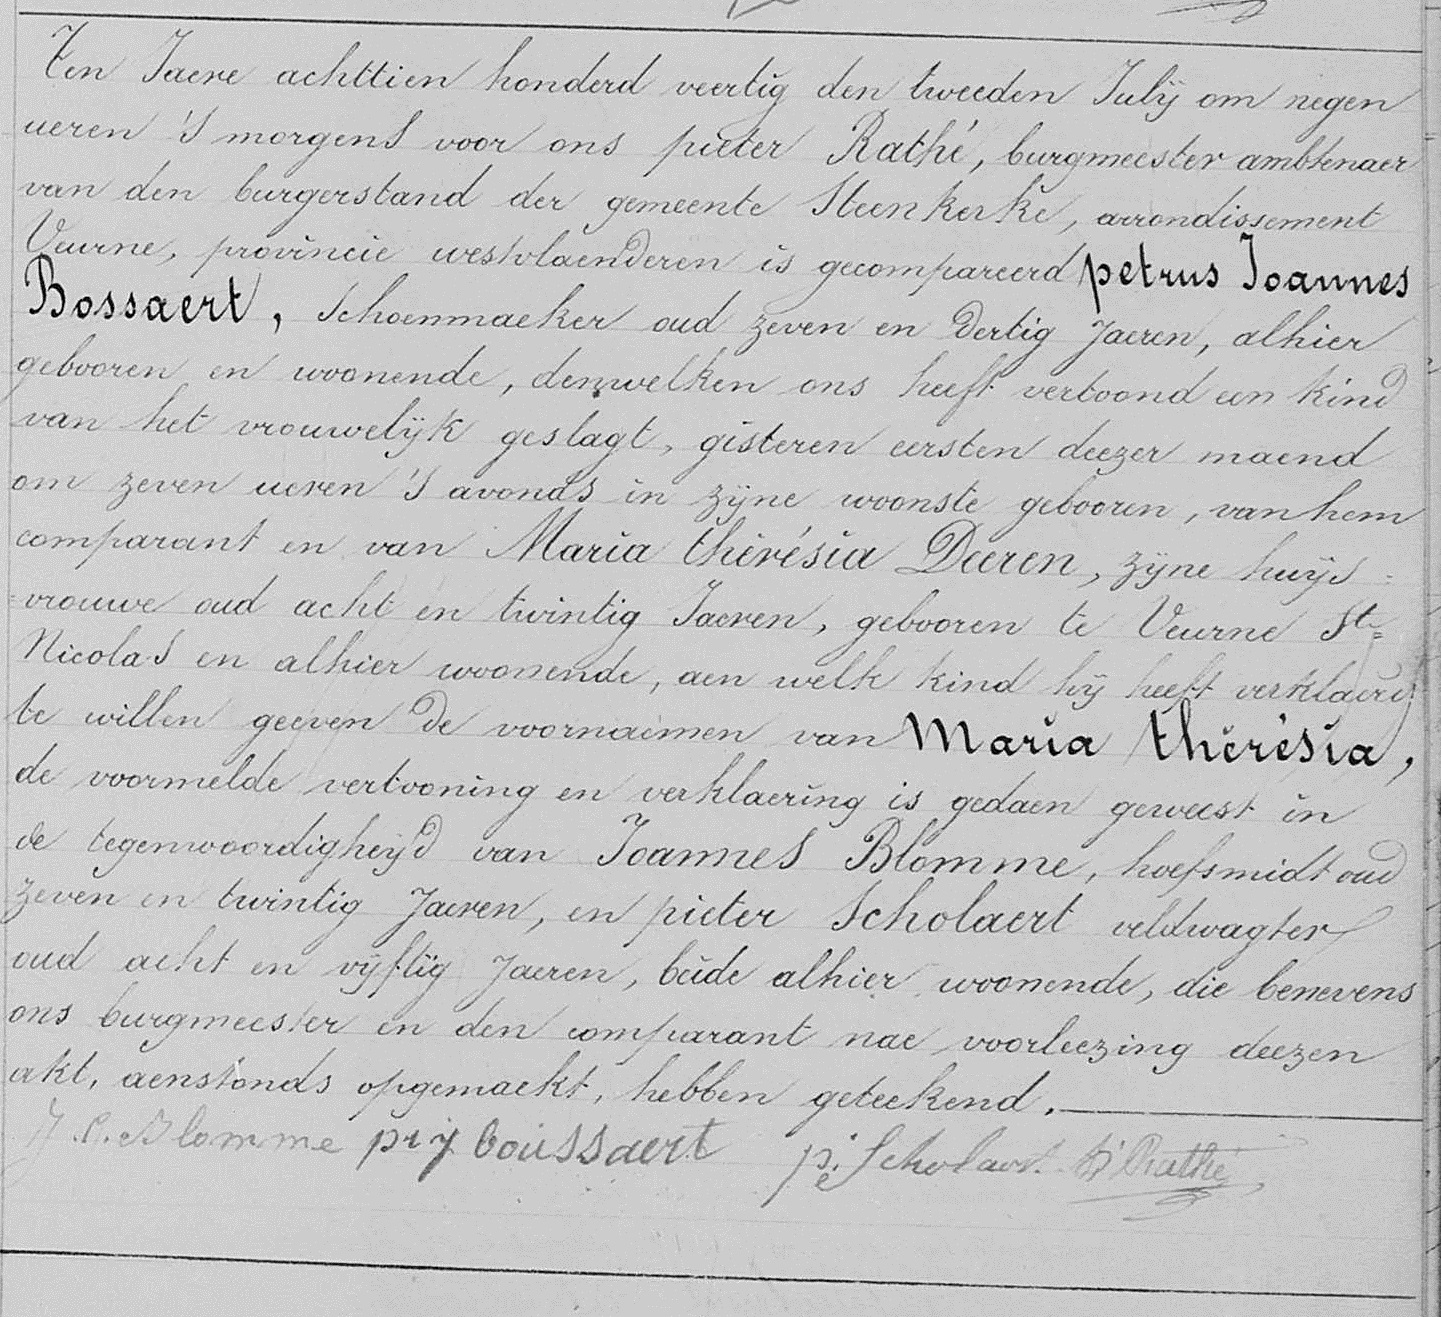 Ten Jaere achttien honderd veertig den tweeden July om negen
ueren 's morgens voor ons pieter Rathé, burgmeester ambtenaer
van den burgerstand der gemeente Steenkerke, arrondissement
Veurne, provincie westvlaenderen is gecompareerd petrus Joannes
Bossaert, Schoenmaeker oud zeven en dertig Jaeren, alhier
gebooren en woonende, denwelken ons heeft vertoond een kind
van het vrouwelyk geslagt, gisteren eersten deezer maend
om zeven ueren 's avonds in zyne woonste gebooren, van hem
comparant en van Maria thérésia Deeren, zyne huys=
=vrouwe oud acht en twintig Jaeren, gebooren te Veurne St=
Nicolas en alhier woonende, aen welk kind hy heeft verklaerd
te willen geeven de voornaemen van Maria thérésia,
de voormelde vertooning en verklaering is gedaen geweest in
de tegenwoordigheyd van Joannes Blomme, hoefsmidt oud
zeven en twintig Jaeren, en pieter Scholaert veldwagter
oud acht en vyftig Jaeren, beide alhier woonende, die benevens
ons burgmeester en den comparant nae voorleezing deezen
akt, aenstonds opgemaekt, hebben geteekend.
J.C. Blomme prj boussaert pe Scholaert P Rathé